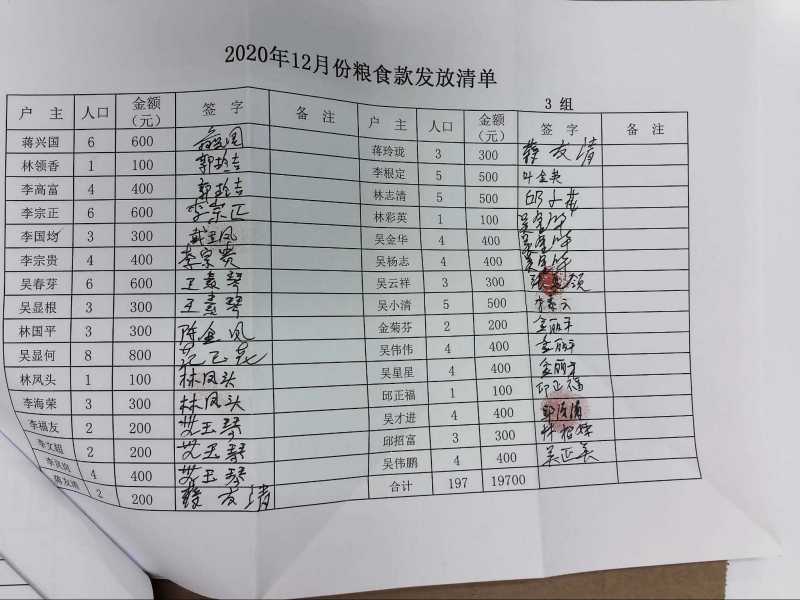 2020年12月份粮食款发放清单
3 组
户 主 人口 金额（元） 签 字 备 注
蒋兴国 6 600
林领香 1 100
李高富 4 400
李宗正 6 600 李宗正
李国均 3 300
李宗贵 4 400 李宗贵
吴春芽 6 600 王素琴
吴显根 3 300 王素琴
林国平 3 300 陈金凤
吴显何 8 800
林凤头 1 100 林凤头
李海荣 3 300 林凤头
李福友 2 200 艾玉琴
李文超 2 200 艾玉琴
4 400 艾玉琴
2 200 友清
户 主 人口 金额（元） 签 字 备 注
蒋玲珑 3 300 友清
李根定 5 500 叶金英
林志清 5 500
林彩英 1 100 吴金华
吴金华 4 400 吴金华
吴杨志 4 400 吴金华
吴云祥 3 300
吴小清 5 500
金菊芬 2 200 金丽平
吴伟伟 4 400 金丽平
吴星星 4 400 金丽平
邱正福 1 100 邱正福
吴才进 4 400
邱招富 3 300
吴伟鹏 4 400 吴正美
合计 197 19700